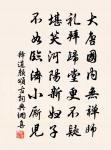 大唐國內無禪師
礼拜歸堂更不疑
堪笑河陽新婦子
不如臨濟小廝兒
釋道顏頌古詞典網書